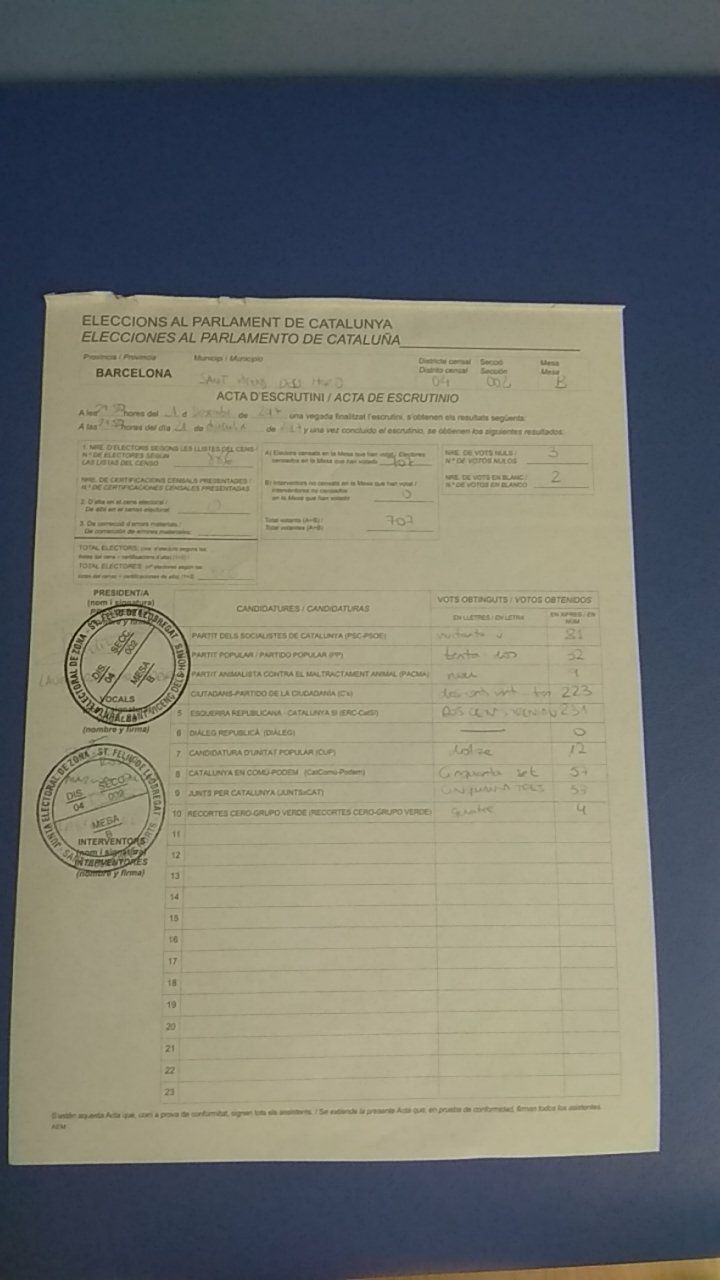 ELECCIONS AL PARLAMENT DE CATALUNYA
ELECCIONES AL PARLAMENTO DE CATALUÑA
Província / Provincia Municipi / Municipio Districte censal Secció Mesa
Distrito censal Sección Mesa
BARCELONA SANT 04 002 B
ACTA D'ESCRUTINI / ACTA DE ESCRUTINIO
A les hores del d de una vegada finalitzat l'escrutini, s'obtenen els resultats següents:
A las horas del día de de y una vez concluido el escrutinio, se obtienen los siguientes resultados:
1. NRE. D'ELECTORS SEGONS LES LLISTES DEL CENS /
N.º DE ELECTORES SEGÚN
LAS LISTAS DEL CENSO
NRE. DE CERTIFICACIONS CENSALS PRESENTADES /
N.º DE CERTIFICACIONES CENSALES PRESENTADAS
2. D'alta en el cens electoral /
De alta en el censo electoral 0
3. De correcció d'errors materials /
De corrección de errores materiales
TOTAL ELECTORS
TOTAL ELECTORES
A) Electors censats en la Mesa que han votat / Electores
censados en la Mesa que han votado 707
B) Interventors no censats en la Mesa que han votat /
Interventores no censados
en la Mesa que han votado 0
Total votants (A+B) /
Total votantes (A+B) 707
NRE. DE VOTS NULS /
N.º DE VOTOS NULOS 3
NRE. DE VOTS EN BLANC /
N.º DE VOTOS EN BLANCO 2
PRESIDENT/A
(nom i signatura)
VOCALS
(nombre y firma)
INTERVENTORS
(nom i signatura)
INTERVENTORES
(nombre y firma)
JUNTA ELECTORAL DE ZONA - ST. FELIU DE LLOBREGAT
DIS. 04
SECC. 002
MESA B
SANT VICENÇ DELS HORTS
JUNTA ELECTORAL DE ZONA - ST. FELIU DE LLOBREGAT
DIS. 04
SECC. 002
MESA B
CANDIDATURES / CANDIDATURAS VOTS OBTINGUTS / VOTOS OBTENIDOS
EN LLETRES / EN LETRA EN XIFRES / EN NÚM
PARTIT DELS SOCIALISTES DE CATALUNYA (PSC-PSOE) 81
PARTIT POPULAR / PARTIDO POPULAR (PP) 32
PARTIT ANIMALISTA CONTRA EL MALTRACTAMENT ANIMAL (PACMA) nou 9
CIUTADANS-PARTIDO DE LA CIUDADANÍA (C's) 223
5 ESQUERRA REPUBLICANA - CATALUNYA SÍ (ERC-CatSí) 231
6 DIÀLEG REPUBLICÀ (DIÀLEG) 0
7 CANDIDATURA D'UNITAT POPULAR (CUP) dotze 12
8 CATALUNYA EN COMÚ-PODEM (CatComú-Podem) Cinquanta set 57
9 JUNTS PER CATALUNYA (JUNTSxCAT) CINQUANTA TRES 53
10 RECORTES CERO-GRUPO VERDE (RECORTES CERO-GRUPO VERDE) quatre 4
11
12
13
14
15
16
17
18
19
20
21
22
23
S'estén aquesta Acta que, com a prova de conformitat, signen tots els assistents. / Se extiende la presente Acta que, en prueba de conformidad, firman todos los asistentes.